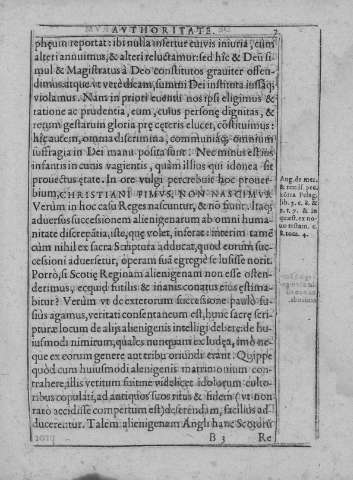 AVTHORITATE. 7
phęum reportat: ibi nulla insertur cuivis iniuria, cum
alteri annuimus, & alteri reluctamur: sed hîc & Deũ si
mul & Magistratus à Deo constitutos grauiter offen-
dimus atque vt verè dicam, summi Dei instituta iussaq́;
violamus. Nam in priori euentu nos ipsi eligimus &
ratione ac prudentia, cum, cuius personę dignitas, &
rerum gestarum gloria prę cęteris elucet, cõstituimus:
hîc autem, omnia discrimina, communiaq́; omnium
suffragia in Dei manu posita sunt: Nec minus est ius
infantis in cunis vagientis, quàm illius qui idonea sit
prouectus ętate. In ore vulgi percrebuit hoc prouer-
bium, CHRISTIANI FIMVS, NON NASCIMVR
Verùm in hoc casu Reges nascuntur, & nõ fiunt. Itaq́;
aduersus successionem alienigenarum ab omni huma
nitate discrepātia, iste, que volet, inferat: interim tamē
cùm nihil ex sacra Scriptura adducat, quod eorum suc-
cessioni aduersetur, operam suā egregiè se lusisse norit.
Porrò, si Scotię Reginam alienigenam non esse osten-
derimus, ecquid futilis & inanis conatus eius ęstima-
bitur? Verùm vt de exterorum successione paulò fu-
sius agamus, veritati consentaneum est, hunc sacrę scri-
pturæ locum de alijs alienigenis intelligi debere: de hu-
iusmodi nimirum, quales nunquam ex Iudęa, imò ne-
que ex eorum genere aut tribu oriundi erant: Quippe
quòd cum huiusmodi alienigenis matrimonium con-
trahere, illis vetitum fuit: ne videlicet idolorum culto-
ribus copulati, ad antiquos suos ritus & fidem (vt non
rarò accidisse compertum est) deserendam, facilius ad-
ducerentur. Talem alienigenam Angli hanc Scotorũ
B 3 Re
Aug. de mer.
& remiss. pec.
cōtra Pelag.
lib. 3. c. 8. &